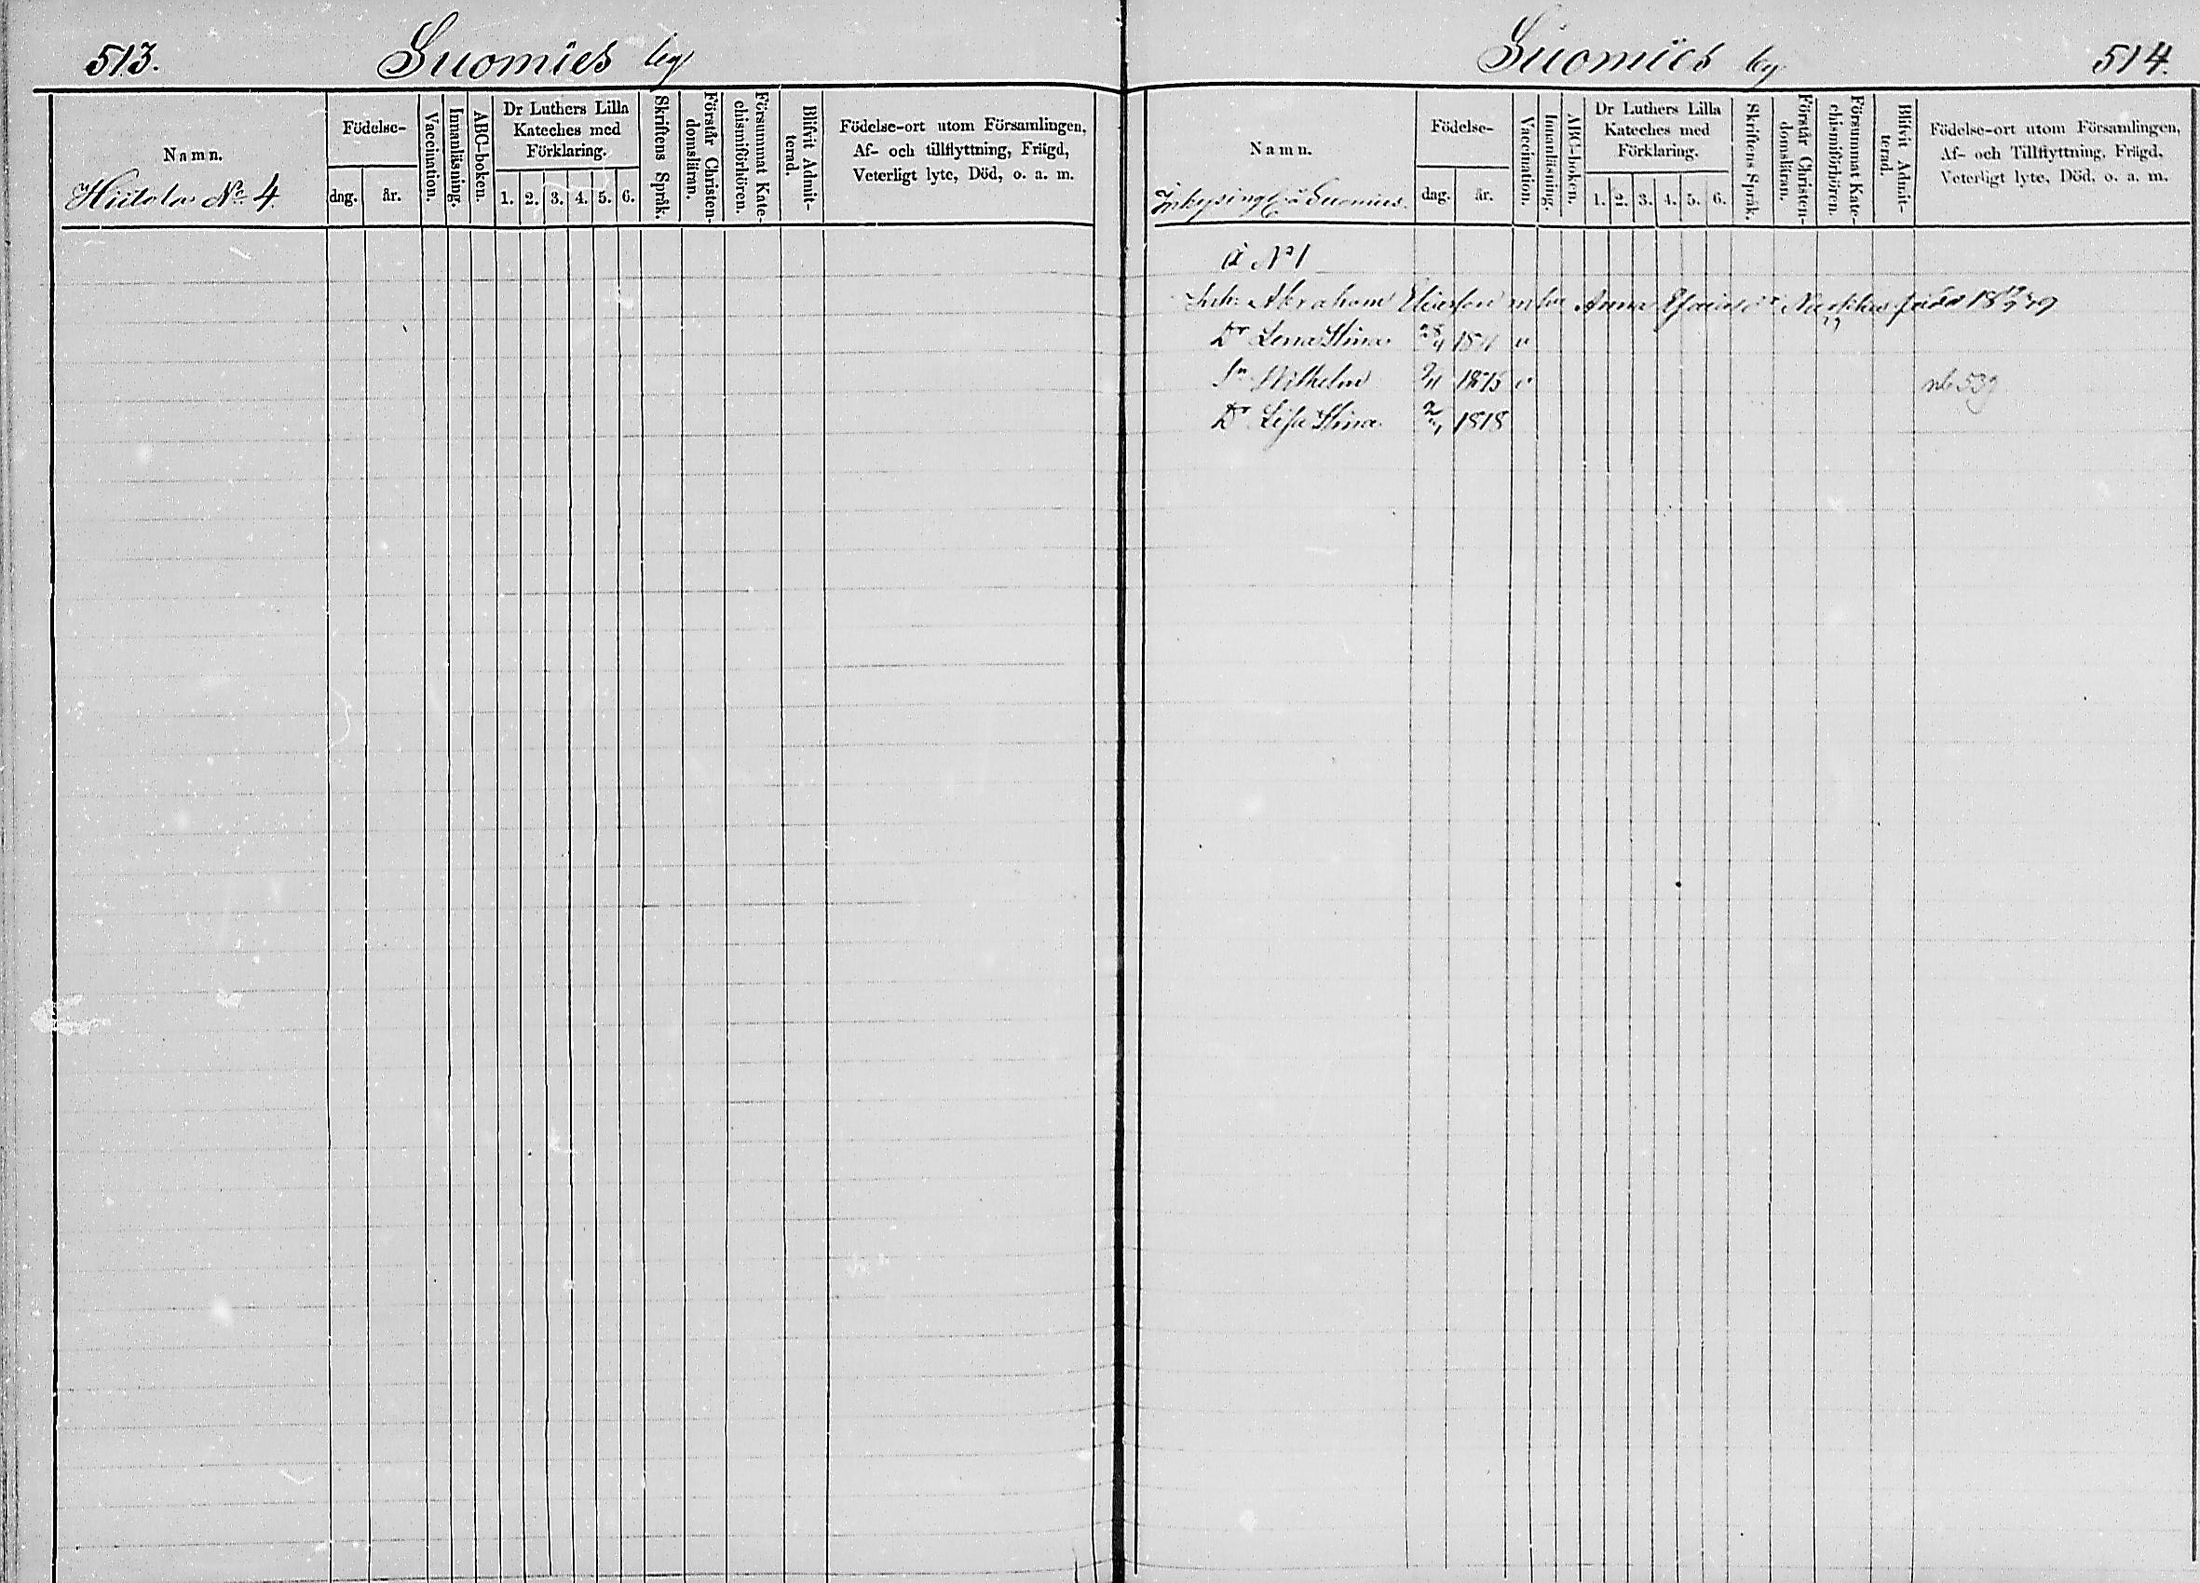 513. Suomies by
Namn.
Hiitola No 4.
Födelse-
dag. år.
Vaccination.
Innanläsning.
ABC-boken.
Dr Luthers Lilla
Kateches med
Förklaring.
1. 2. 3. 4. 5. 6.
Skriftens Språk.
Förstår Christen-
domsläran.
Försummat Kate-
chismiförhören.
Blifvit Admit-
terad.
Födelse-ort utom Församlingen,
Af- och tillflyttning, Frägd,
Veterligt lyte, Död, o. a. m.
Suomies by 514.
Namn.
å Suomies.
Födelse-
dag. år.
Vaccination.
Innanläsning.
ABC-boken.
Dr Luthers Lilla
Kateches med
Förklaring.
1. 2. 3. 4. 5. 6.
Skriftens Språk.
Förstår Christen-
domsläran.
Försummat Kate-
chismiförhören.
Blifvit Admit-
terad.
Födelse-ort utom Församlingen,
Af- och Tillflyttning, Frägd,
Veterligt lyte, Död, o. a. m.
å No 1
Abraham Anna
Dr Lena Stina v
Sn Wilhelm 1815 v 539
Dr Lisa Stina 1818